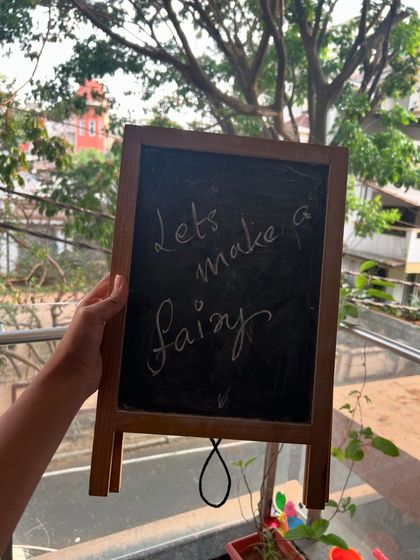 Lets
make a
fairy